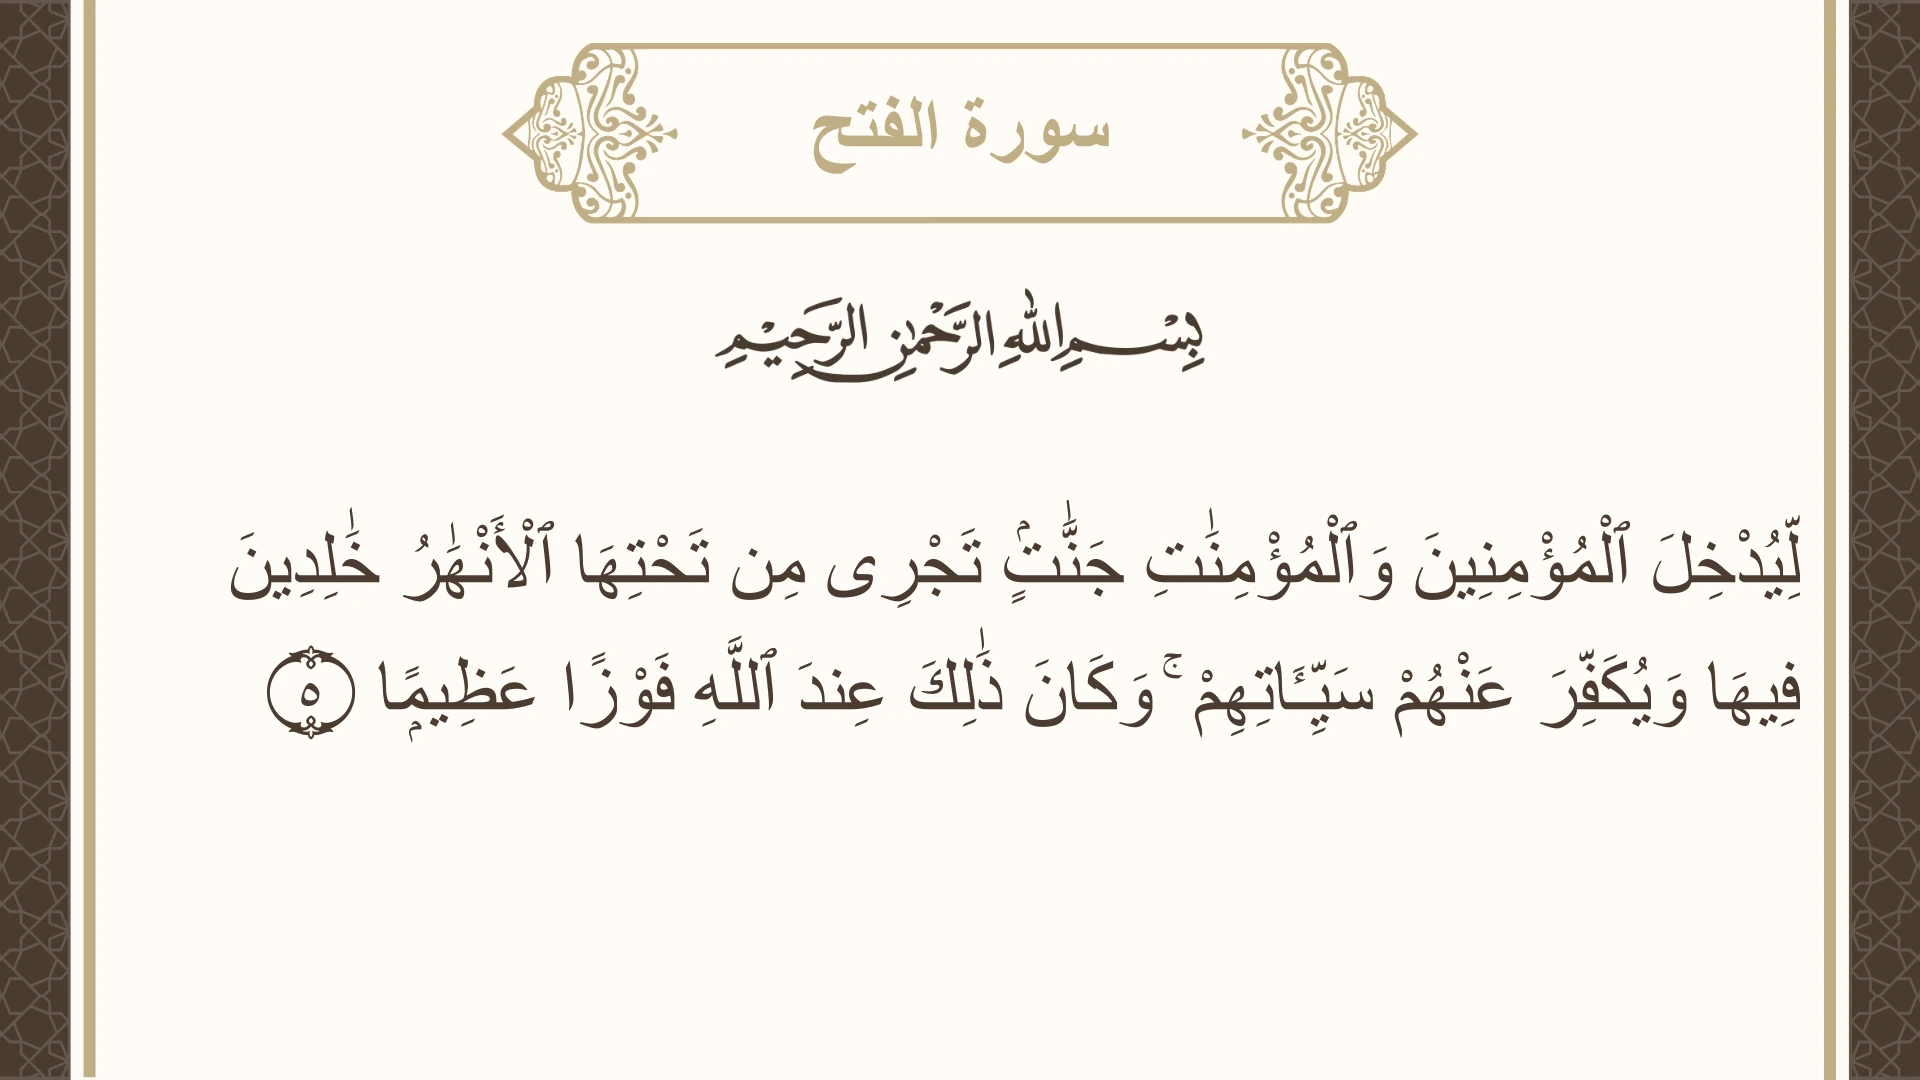 سورة الفتح
بِسْمِ اللهِ الرَّحْمٰنِ الرَّحِيْمِ
لِّيُدْخِلَ ٱلْمُؤْمِنِينَ وَٱلْمُؤْمِنَٰتِ جَنَّٰتٍۢ تَجْرِى مِن تَحْتِهَا ٱلْأَنْهَٰرُ خَٰلِدِينَ
فِيهَا وَيُكَفِّرَ عَنْهُمْ سَيِّـَٔاتِهِمْ ۚ وَكَانَ ذَٰلِكَ عِندَ ٱللَّهِ فَوْزًا عَظِيمًۭا ٥